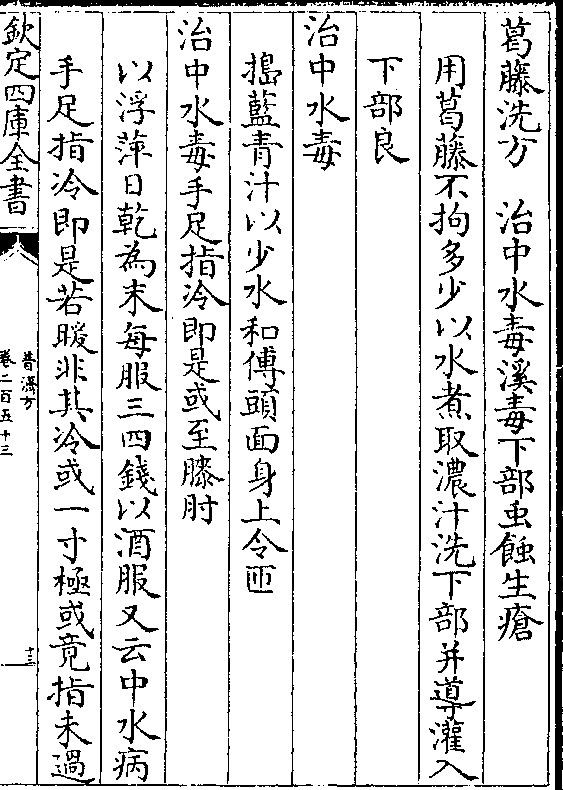 葛藤洗方　治中水毒溪毒下部虫蝕生瘡
用葛藤不拘多少以水煮取濃汁洗下部并導灌入
下部良
治中水毒
搗藍青汁以少水和傅頭面身上令匝
治中水毒手足指冷即是或至膝肘
以浮萍日乾為末每服三四錢以酒服又云中水病
手足指冷即是若暖非其冷或一寸極或竟指未過
欽定四庫全書
普濟方
卷二百五十三
十三